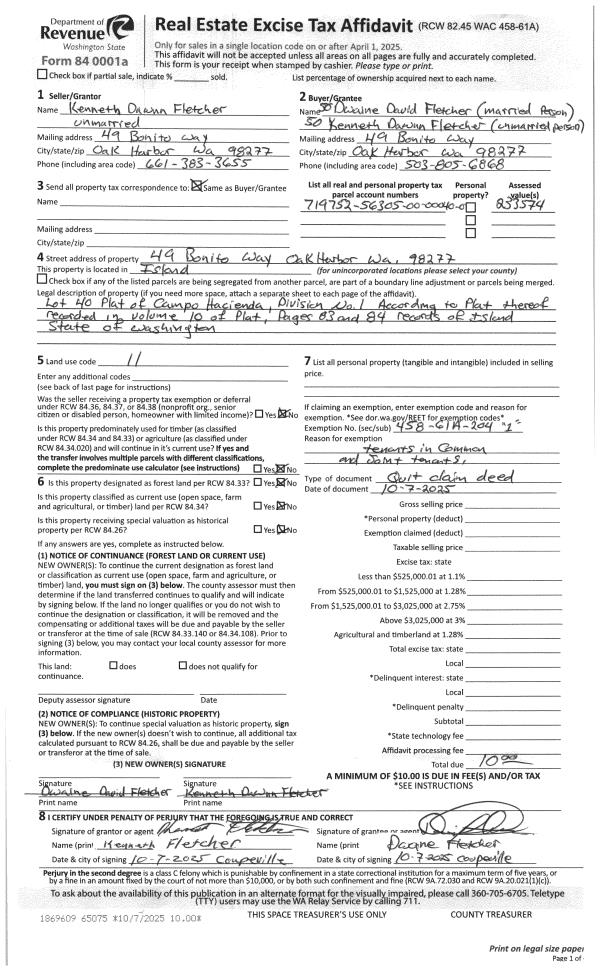 Department of
Revenue
Washington State
Form 84 0001a
Real Estate Excise Tax Affidavit (RCW 82.45 WAC 458-61A)
Only for sales in a single location code on or after April 1, 2025.
This affidavit will not be accepted unless all areas on all pages are fully and accurately completed.
This form is your receipt when stamped by cashier. Please type or print.
Check box if partial sale, indicate % sold.
List percentage of ownership acquired next to each name.
1 Seller/Grantor
Name Kenneth Dawnn Fletcher
unmarried
Mailing address 49 Bonito Way
City/state/zip Oak Harbor Wa 98277
Phone (including area code) 661-383-3655
2 Buyer/Grantee
Name 50 Dwaine David Fletcher (married Person)
50 Kenneth Dawnn Fletcher (unmarried person)
Mailing address 49 Bonito Way
City/state/zip Oak Harbor Wa 98277
Phone (including area code) 503-805-6868
3 Send all property tax correspondence to: Same as Buyer/Grantee
Name
Mailing address
City/state/zip
List all real and personal property tax parcel account numbers
Personal property?
Assessed value(s)
719752-56305-00-00040-0
253574
4 Street address of property 49 Bonito Way Oak Harbor Wa. 98277
This property is located in Island (for unincorporated locations please select your county)
Check box if any of the listed parcels are being segregated from another parcel, are part of a boundary line adjustment or parcels being merged.
Legal description of property (if you need more space, attach a separate sheet to each page of the affidavit).
Lot 40 Plat of Campo Hacienda, Division No. 1 According to Plat thereof
recorded in volume 10 of Plat, Pages 83 and 84 records of Island
State of Washington
5 Land use code 11
Enter any additional codes
(see back of last page for instructions)
Was the seller receiving a property tax exemption or deferral
under RCW 84.36, 84.37, or 84.38 (nonprofit org., senior
citizen or disabled person, homeowner with limited income)? Yes No
Is this property predominately used for timber (as classified
under RCW 84.34 and 84.33) or agriculture (as classified under
RCW 84.34.020) and will continue in it's current use? If yes and
the transfer involves multiple parcels with different classifications,
complete the predominate use calculator (see instructions) Yes No
6 Is this property designated as forest land per RCW 84.33? Yes No
Is this property classified as current use (open space, farm
and agricultural, or timber) land per RCW 84.34? Yes No
Is this property receiving special valuation as historical
property per RCW 84.26? Yes No
If any answers are yes, complete as instructed below.
(1) NOTICE OF CONTINUANCE (FOREST LAND OR CURRENT USE)
NEW OWNER(S): To continue the current designation as forest land
or classification as current use (open space, farm and agriculture, or
timber) land, you must sign on (3) below. The county assessor must then
determine if the land transferred continues to qualify and will indicate
by signing below. If the land no longer qualifies or you do not wish to
continue the designation or classification, it will be removed and the
compensating or additional taxes will be due and payable by the seller
or transferor at the time of sale (RCW 84.33.140 or 84.34.108). Prior to
signing (3) below, you may contact your local county assessor for more
information.
This land: does does not qualify for
continuance.
Deputy assessor signature Date
(2) NOTICE OF COMPLIANCE (HISTORIC PROPERTY)
NEW OWNER(S): To continue special valuation as historic property, sign
(3) below. If the new owner(s) doesn't wish to continue, all additional tax
calculated pursuant to RCW 84.26, shall be due and payable by the seller
or transferor at the time of sale.
(3) NEW OWNER(S) SIGNATURE
Signature Signature
Dwaine David Fletcher Kenneth Dawnn Fletcher
Print name Print name
7 List all personal property (tangible and intangible) included in selling
price.
If claiming an exemption, enter exemption code and reason for
exemption. *See dor.wa.gov/REET for exemption codes*
Exemption No. (sec/sub) 458-61A-204 "1"
Reason for exemption
tenants in Common
and Joint tenants,
Type of document Quit claim deed
Date of document 10-7-2025
Gross selling price
*Personal property (deduct)
Exemption claimed (deduct)
Taxable selling price
Excise tax: state
Less than $525,000.01 at 1.1%
From $525,000.01 to $1,525,000 at 1.28%
From $1,525,000.01 to $3,025,000 at 2.75%
Above $3,025,000 at 3%
Agricultural and timberland at 1.28%
Total excise tax: state
Local
*Delinquent interest: state
Local
*Delinquent penalty
Subtotal
*State technology fee
Affidavit processing fee
Total due 10.00
A MINIMUM OF $10.00 IS DUE IN FEE(S) AND/OR TAX
*SEE INSTRUCTIONS
8 I CERTIFY UNDER PENALTY OF PERJURY THAT THE FOREGOING IS TRUE AND CORRECT
Signature of grantor or agent
Name (print) Kenneth Fletcher
Date & city of signing 10-7-2025 Coupeville
Signature of grantee or agent
Name (print) Dwaine Fletcher
Date & city of signing 10-7-2025 Coupeville
Perjury in the second degree is a class C felony which is punishable by confinement in a state correctional institution for a maximum term of five years, or
by a fine in an amount fixed by the court of not more than $10,000, or by both such confinement and fine (RCW 9A.72.030 and RCW 9A.20.021(1)(c)).
To ask about the availability of this publication in an alternate format for the visually impaired, please call 360-705-6705. Teletype
(TTY) users may use the WA Relay Service by calling 711.
1869609 65075 *10/7/2025 10.00*
THIS SPACE TREASURER'S USE ONLY
COUNTY TREASURER
Print on legal size paper
Page 1 of